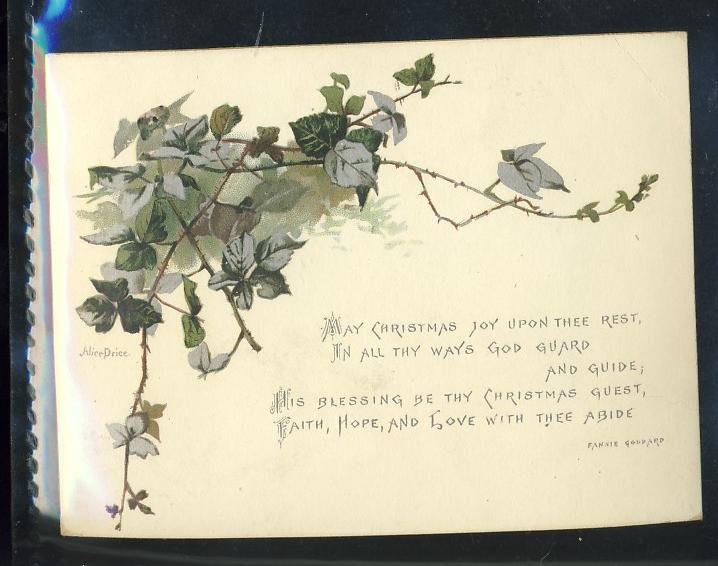 Alice Price.
MAY CHRISTMAS JOY UPON THEE REST,
IN ALL THY WAYS GOD GUARD
AND GUIDE;
HIS BLESSING BE THY CHRISTMAS GUEST,
FAITH, HOPE, AND LOVE WITH THEE ABIDE
FANNIE GODDARD